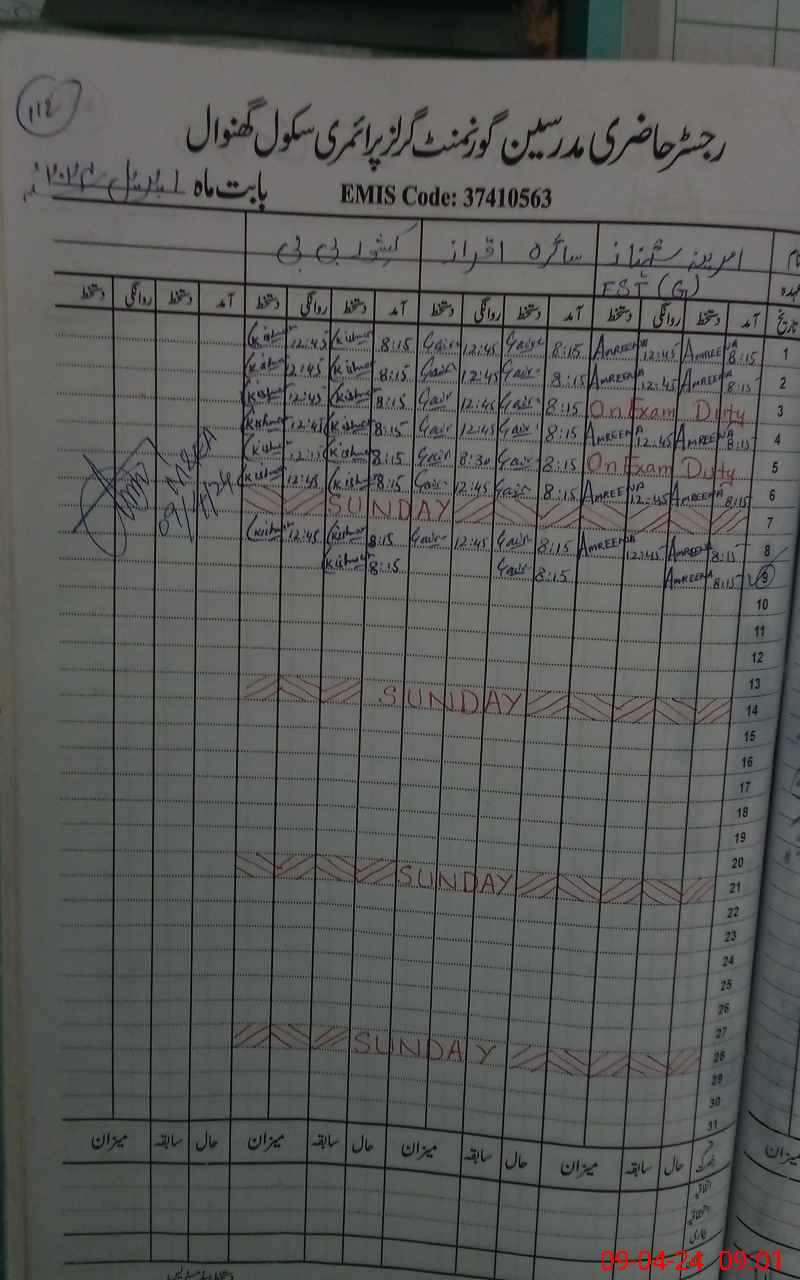 114
رجسٹر حاضری مدرسین گورنمنٹ گرلز پرائمری سکول گھنوال
بابت ماہ اپریل ۲۰۲۴ء EMIS Code: 37410563
نام امرینہ شہناز سائرہ اقراز کشور بی بی
عہدہ EST (G)
تاریخ آمد دستخط روانگی دستخط آمد دستخط روانگی دستخط آمد دستخط روانگی دستخط آمد دستخط روانگی دستخط
1 8:15 AMREENA 12:45 AMREENA 8:15 12:45 8:15 Kishwar 12:45 Kishwar
2 8:15 AMREENA 12:45 AMREENA 8:15 12:45 8:15 Kishwar 12:45 Kishwar
3 On Exam Duty 8:15 12:45 8:15 Kishwar 12:45 Kishwar
4 8:15 AMREENA 12:45 AMREENA 8:15 12:45 8:15 Kishwar 12:45 Kishwar
5 On Exam Duty 8:15 8:30 8:15 Kishwar Kishwar
6 8:15 AMREENA 12:45 AMREENA 8:15 12:45 8:15 Kishwar 12:45 Kishwar
7 SUNDAY
8 8:15 AMREENA 12:45 AMREENA 8:15 12:45 8:15 Kishwar 12:45 Kishwar
9 8:15 AMREENA 8:15 8:15 Kishwar
MEEA
09/4/24
10
11
12
13
14 SUNDAY
15
16
17
18
19
20
21 SUNDAY
22
23
24
25
26
27
28 SUNDAY
29
30
31
حال سابقہ میزان حال سابقہ میزان حال سابقہ میزان حال سابقہ میزان
میزان
اتفاقیہ
استحقاقی
بیماری
09-04-24 09:01